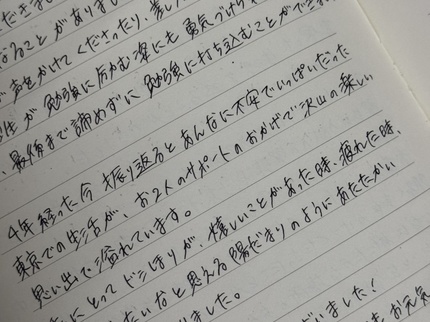 だきま
なることがありまし
が声をかけてくださったり、差し
生が勉強に励む姿にも勇気づけら
、最後まで諦めずに勉強に打ち込むことができま
4年経った今振り返るとあんなに不安でいっぱいだった
東京での生活が、お2人のサポートのおかげで沢山の楽しい
思い出で溢れています。
にとってドミーほりが、嬉しいことがあった時、疲れた時、
たいなと思える陽だまりのようにあたたかい
ました。
ざいました！
お元気